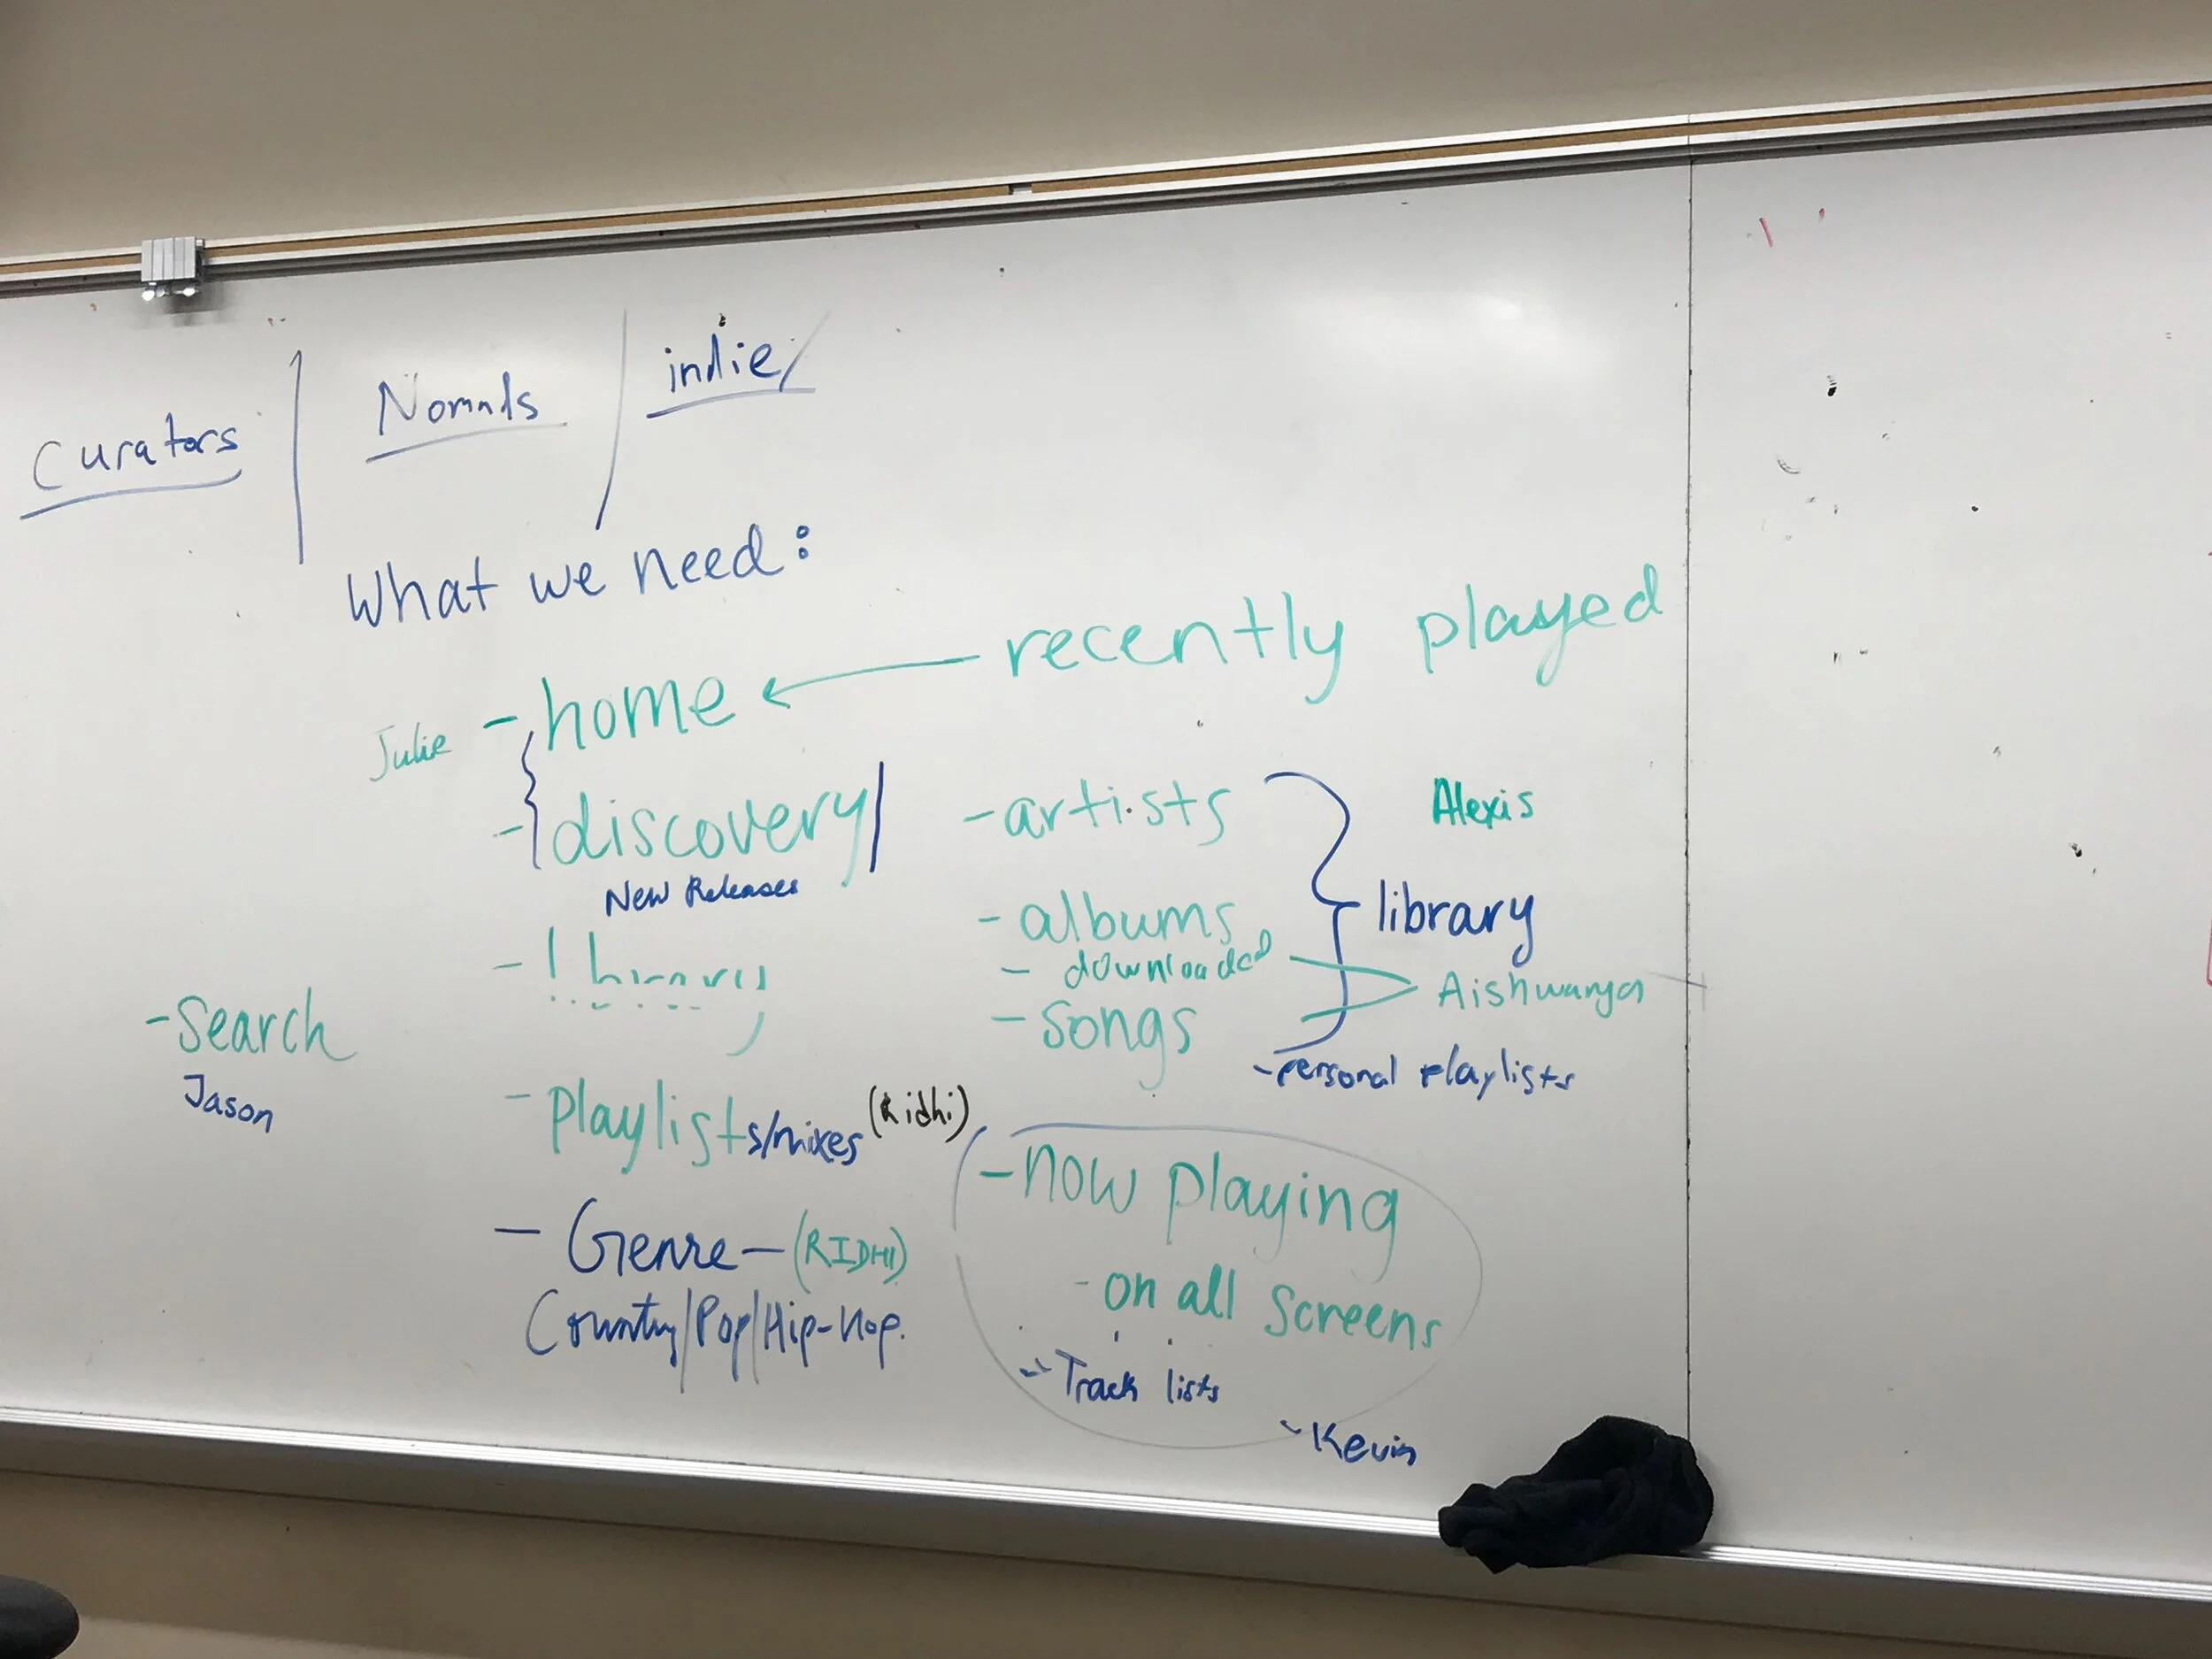 Curators
Nomads
indie/
What we need:
recently played
Julie - home
- discovery
New Releases
- artists
Alexis
- albums
library
- library
- downloaded
Aishwarya
- Search
Jason
- songs
- personal playlists
- playlists/mixes (Ridhi)
- now playing
- on all screens
- Genre - (RIDHI)
Country/Pop/Hip-Hop.
- Track lists
- Kevin